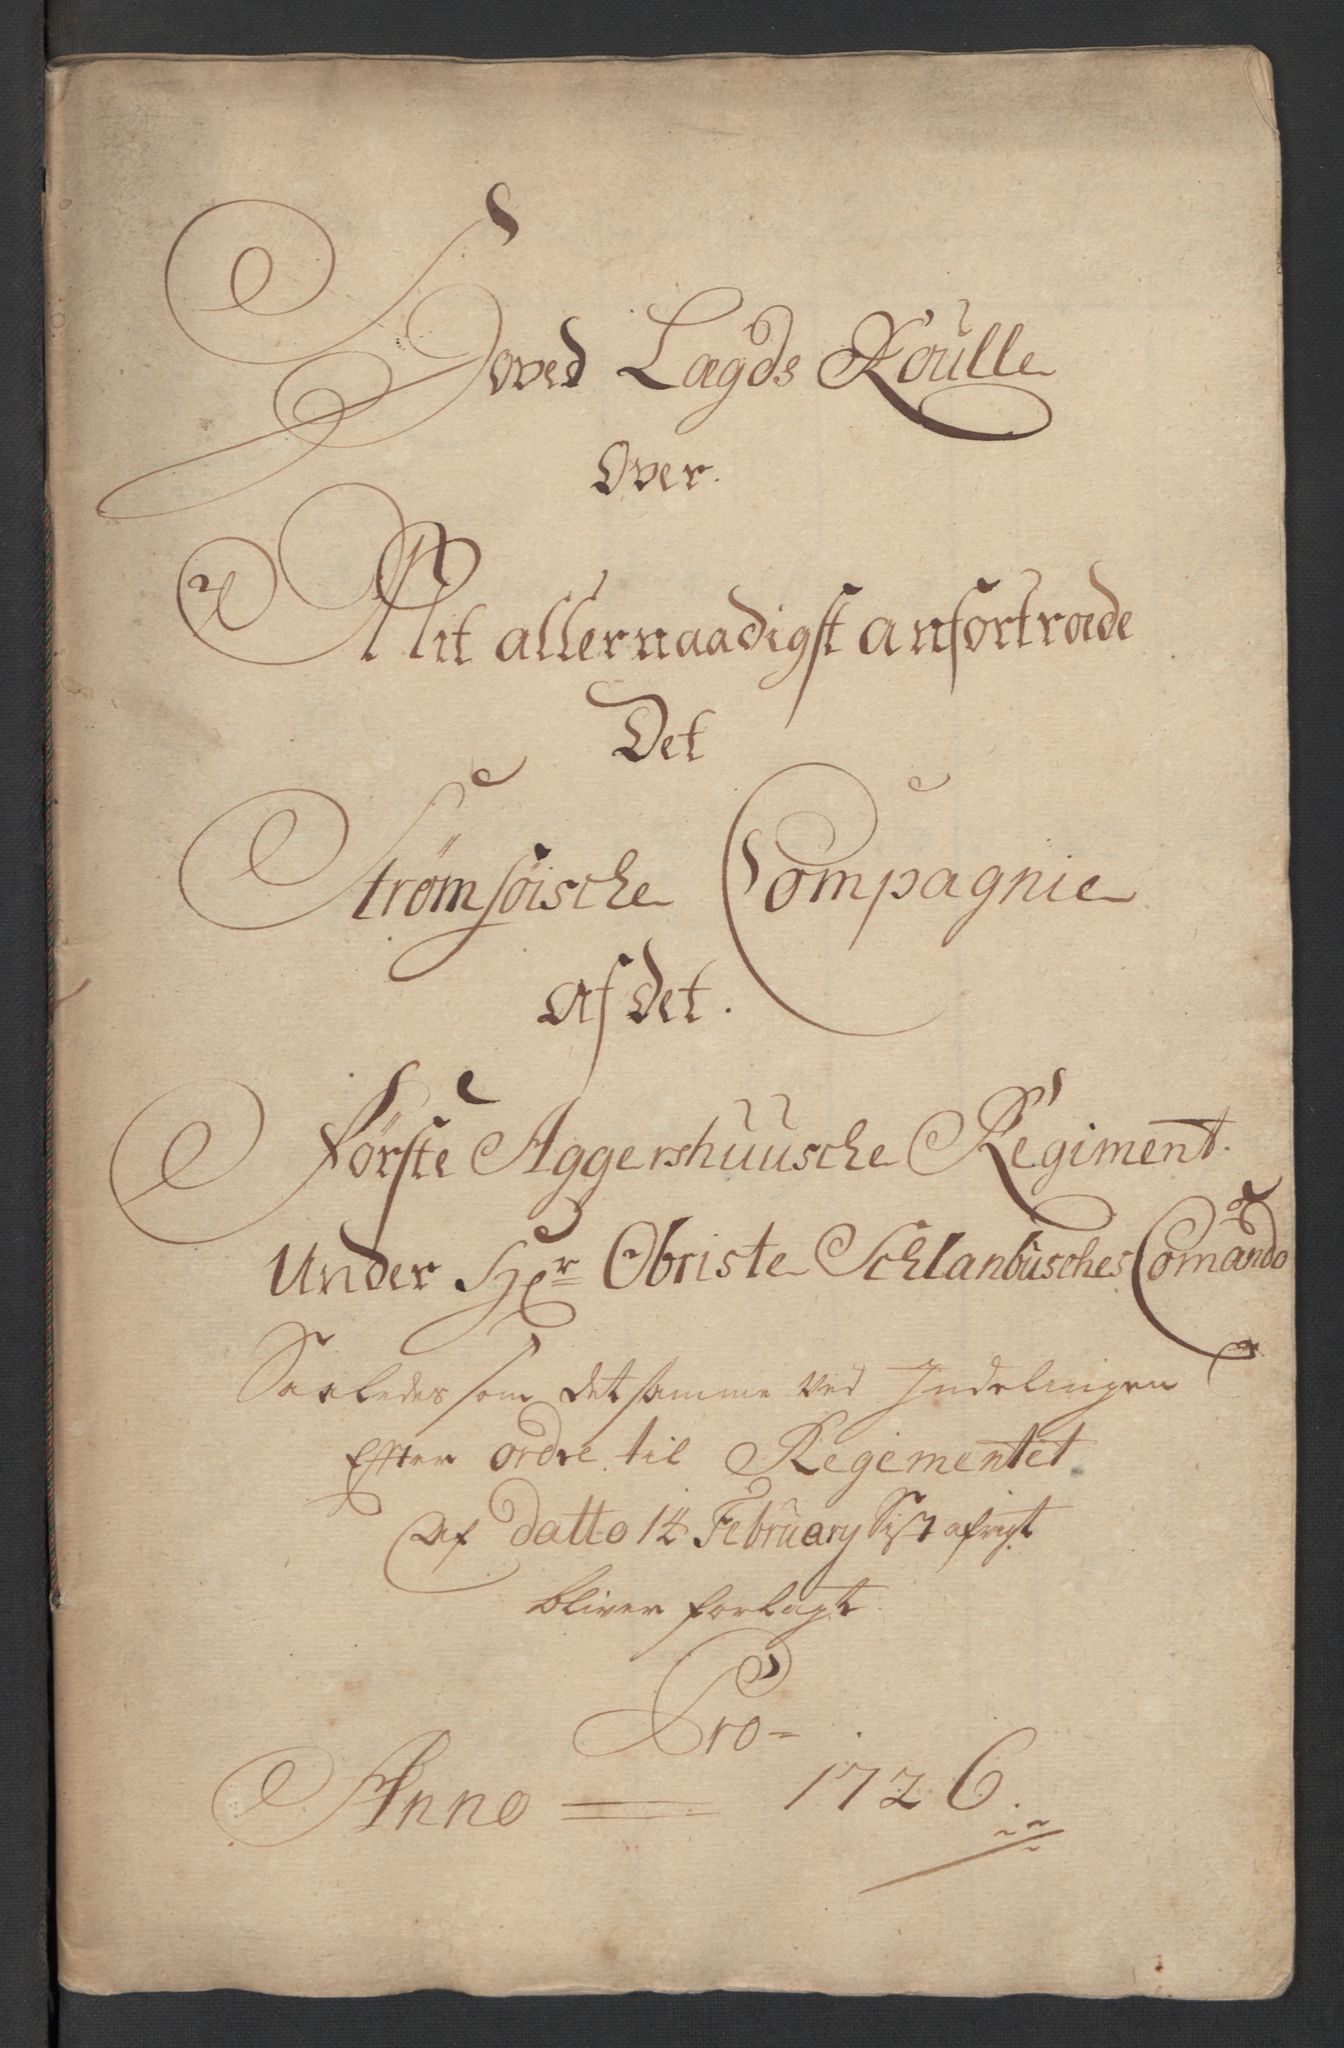 Hoved Lægds Roulle
Over.
Mit allernaadigst anfortroede
Det
Strømsöische Compagnie
af det.
Förste Aggershuusche Regiment.
Under Hr. Obriste Schlanbusches Comando
Saaledes som det samme ved Indelingen
Efter ordre til Regimentet
Af datto 14 February Sist afvigt
bliver forlagt
Pro
Anno = 1726.